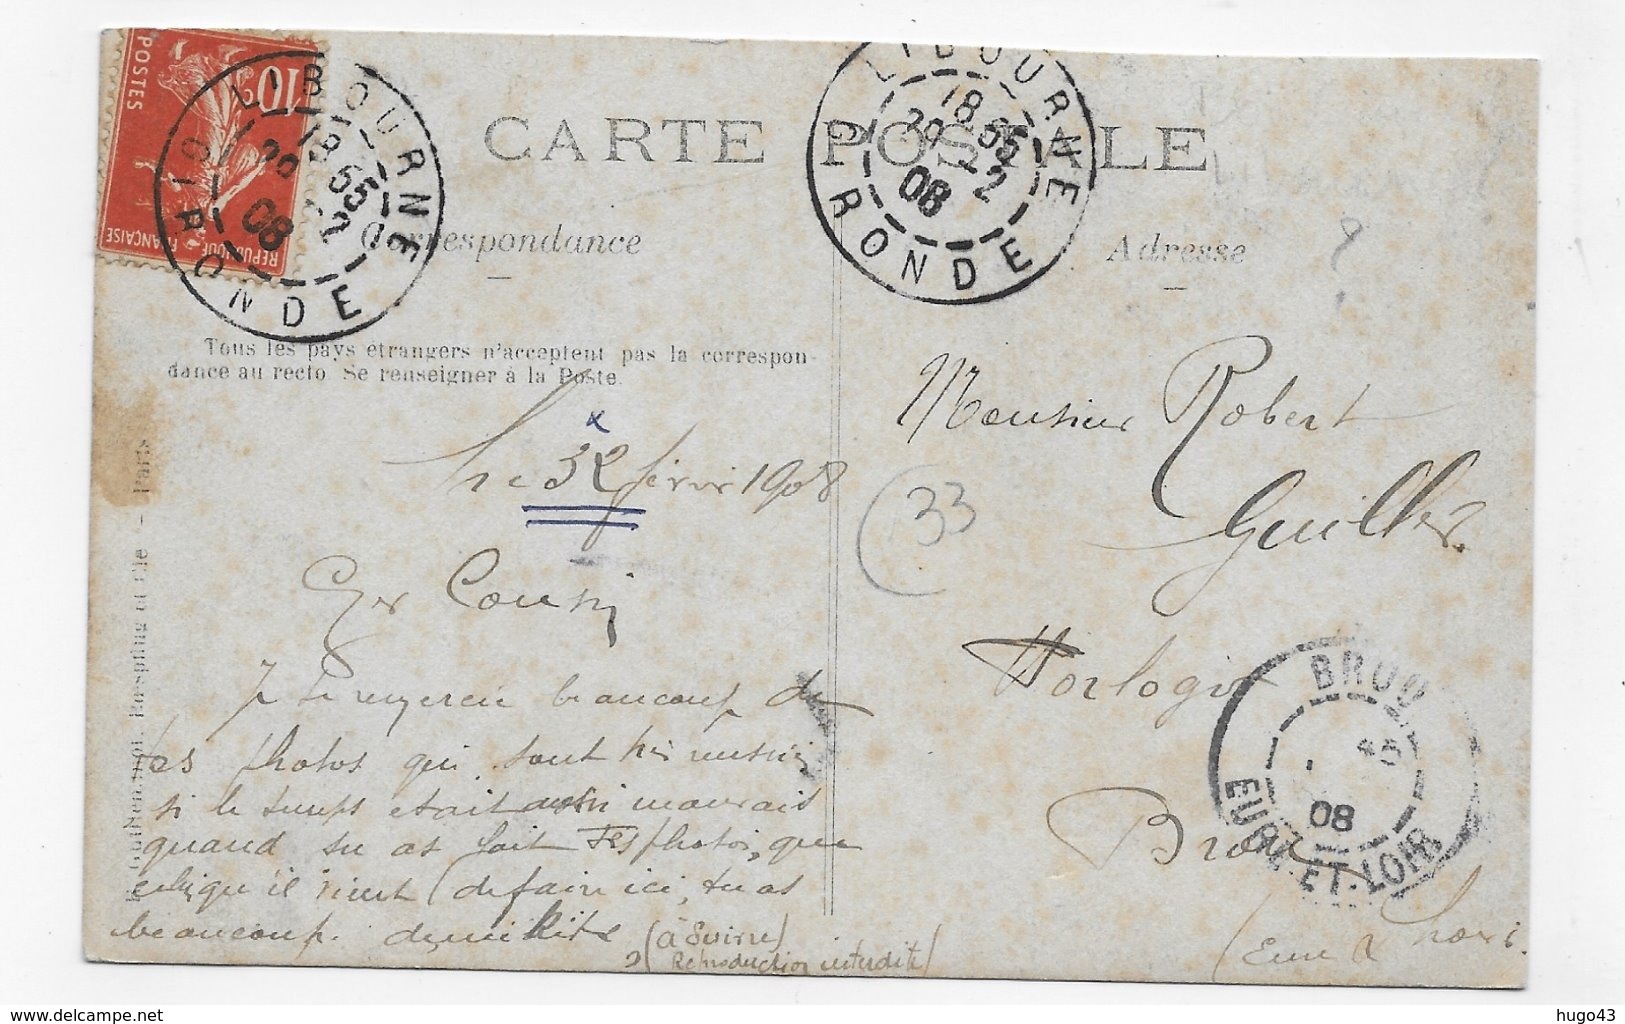 POSTES
10c
REPUBLIQUE FRANÇAISE
LIBOURNE
18 55
20 - 2
08
GIRONDE
LIBOURNE
18 55
20 - 2
08
GIRONDE
CARTE POSTALE
Correspondance
Adresse
Tous les pays étrangers n'acceptent pas la correspon-
dance au recto. Se renseigner à la Poste.
x
le 32 février 1908
Cher Cousin
Je te remercie beaucoup de
tes photos qui sont très
si le temps était aussi mauvais
quand tu as fait tes photos, que
celui qu'il vient de faire ici, tu as
beaucoup de mérite (à Suivre)
(Reproduction interdite)
Paris
Monsieur Robert
Guiller
(33
Horloger
Brou
(Eure & Loir.
BROU
08
EURE-ET-LOIR
hugo43